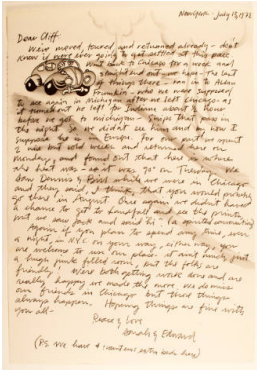 New York - July 13, 1972
Dear Cliff -
We've moved, toured and returned already - don't
know if we're ever going to get settled at this pace.
went back to Chicago for a week and
straightened out
of things there - ran in to
Frumkin - who we were supposed
to see again in Michigan after we left Chicago - as
it turned out he left for Indiana about 2 hours
before we got to Michigan - Ships that pass in
the night. So we didn't see him and by now I
suppose he is in Europe. For our part we spent
2 nice but cold weeks and returned here on
Monday, and found out that here is where
the heat was - so it was 90° on Tuesday. We
saw Dennis & Gladys while we were in Chicago
and they said, I think, that you would probably
get there in August. Once again we didn't have
a chance to get to Landfall and see the prints,
but we saw Jack and Ethel (
Again if you plan to spend any time, even
a night, in NYC on your way, either way, you
are welcome to use our place. It ain't much, just
a huge junk filled room, but the folks are
friendly! We're both getting work done and are
really happy we made the move. We do miss
our friends in Chicago but these things
always happen. Hoping things are fine with
you all -
Peace & Love
Sarah & Edward
(P.S. We have 2 (count em) extra beds here)